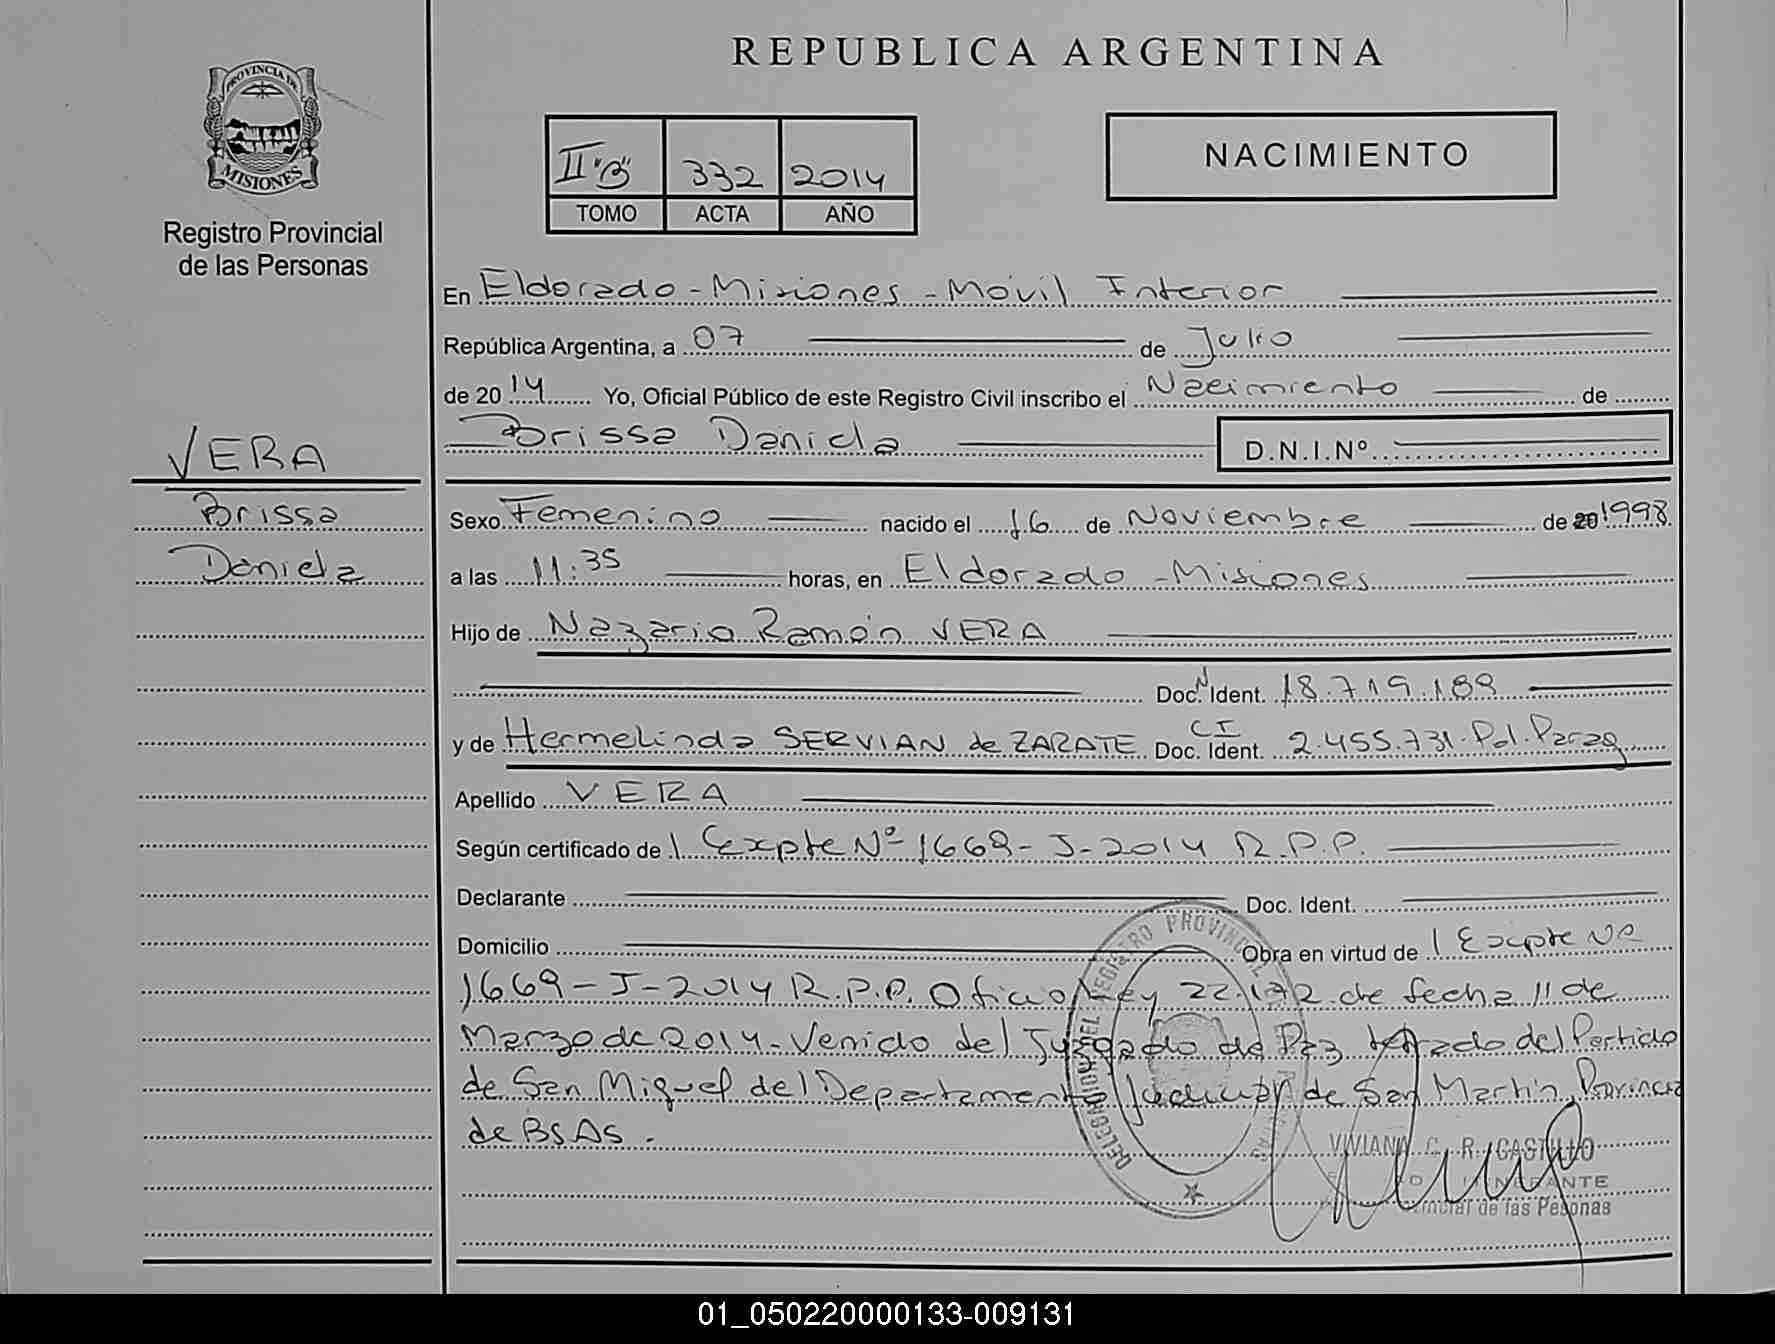 REPUBLICA ARGENTINA
PROVINCIA DE
MISIONES
Registro Provincial
de las Personas
II "B" 332 2014
TOMO ACTA AÑO
NACIMIENTO
En Eldorado - Misiones - Movil Interior
República Argentina, a 07 de Julio
de 2014 Yo, Oficial Público de este Registro Civil inscribo el Nacimiento de
Brissa Daniela D.N.I.Nº
VERA
Brissa
Daniela
Sexo Femenino nacido el 16 de Noviembre de 20 1998
a las 11:35 horas, en Eldorado - Misiones
Hijo de Nazario Ramón VERA
Doc. N Ident. 18.719.189
y de Hermelinda SERVIAN de ZARATE Doc. CI Ident. 2.455.731. Pol. Parag
Apellido VERA
Según certificado de 1 Expte Nº 1669 - J - 2014 R.P.P.
Declarante Doc. Ident.
Domicilio Obra en virtud de 1 Expte Nº
1669 - J - 2014 R.P.P. Oficio Ley 22.172 de fecha 11 de
Marzo de 2014 - Venido del Juzgado de Paz letrado del Partido
de San Miguel del Departamento Judicial de San Martin, Provincia
de BsAs.
DELEGACION DEL REGISTRO PROVINCIAL DE LAS PERSONAS
VIVIANA C. R. CASTILLO
ITINERANTE
Provincial de las Pesonas
01_050220000133-009131